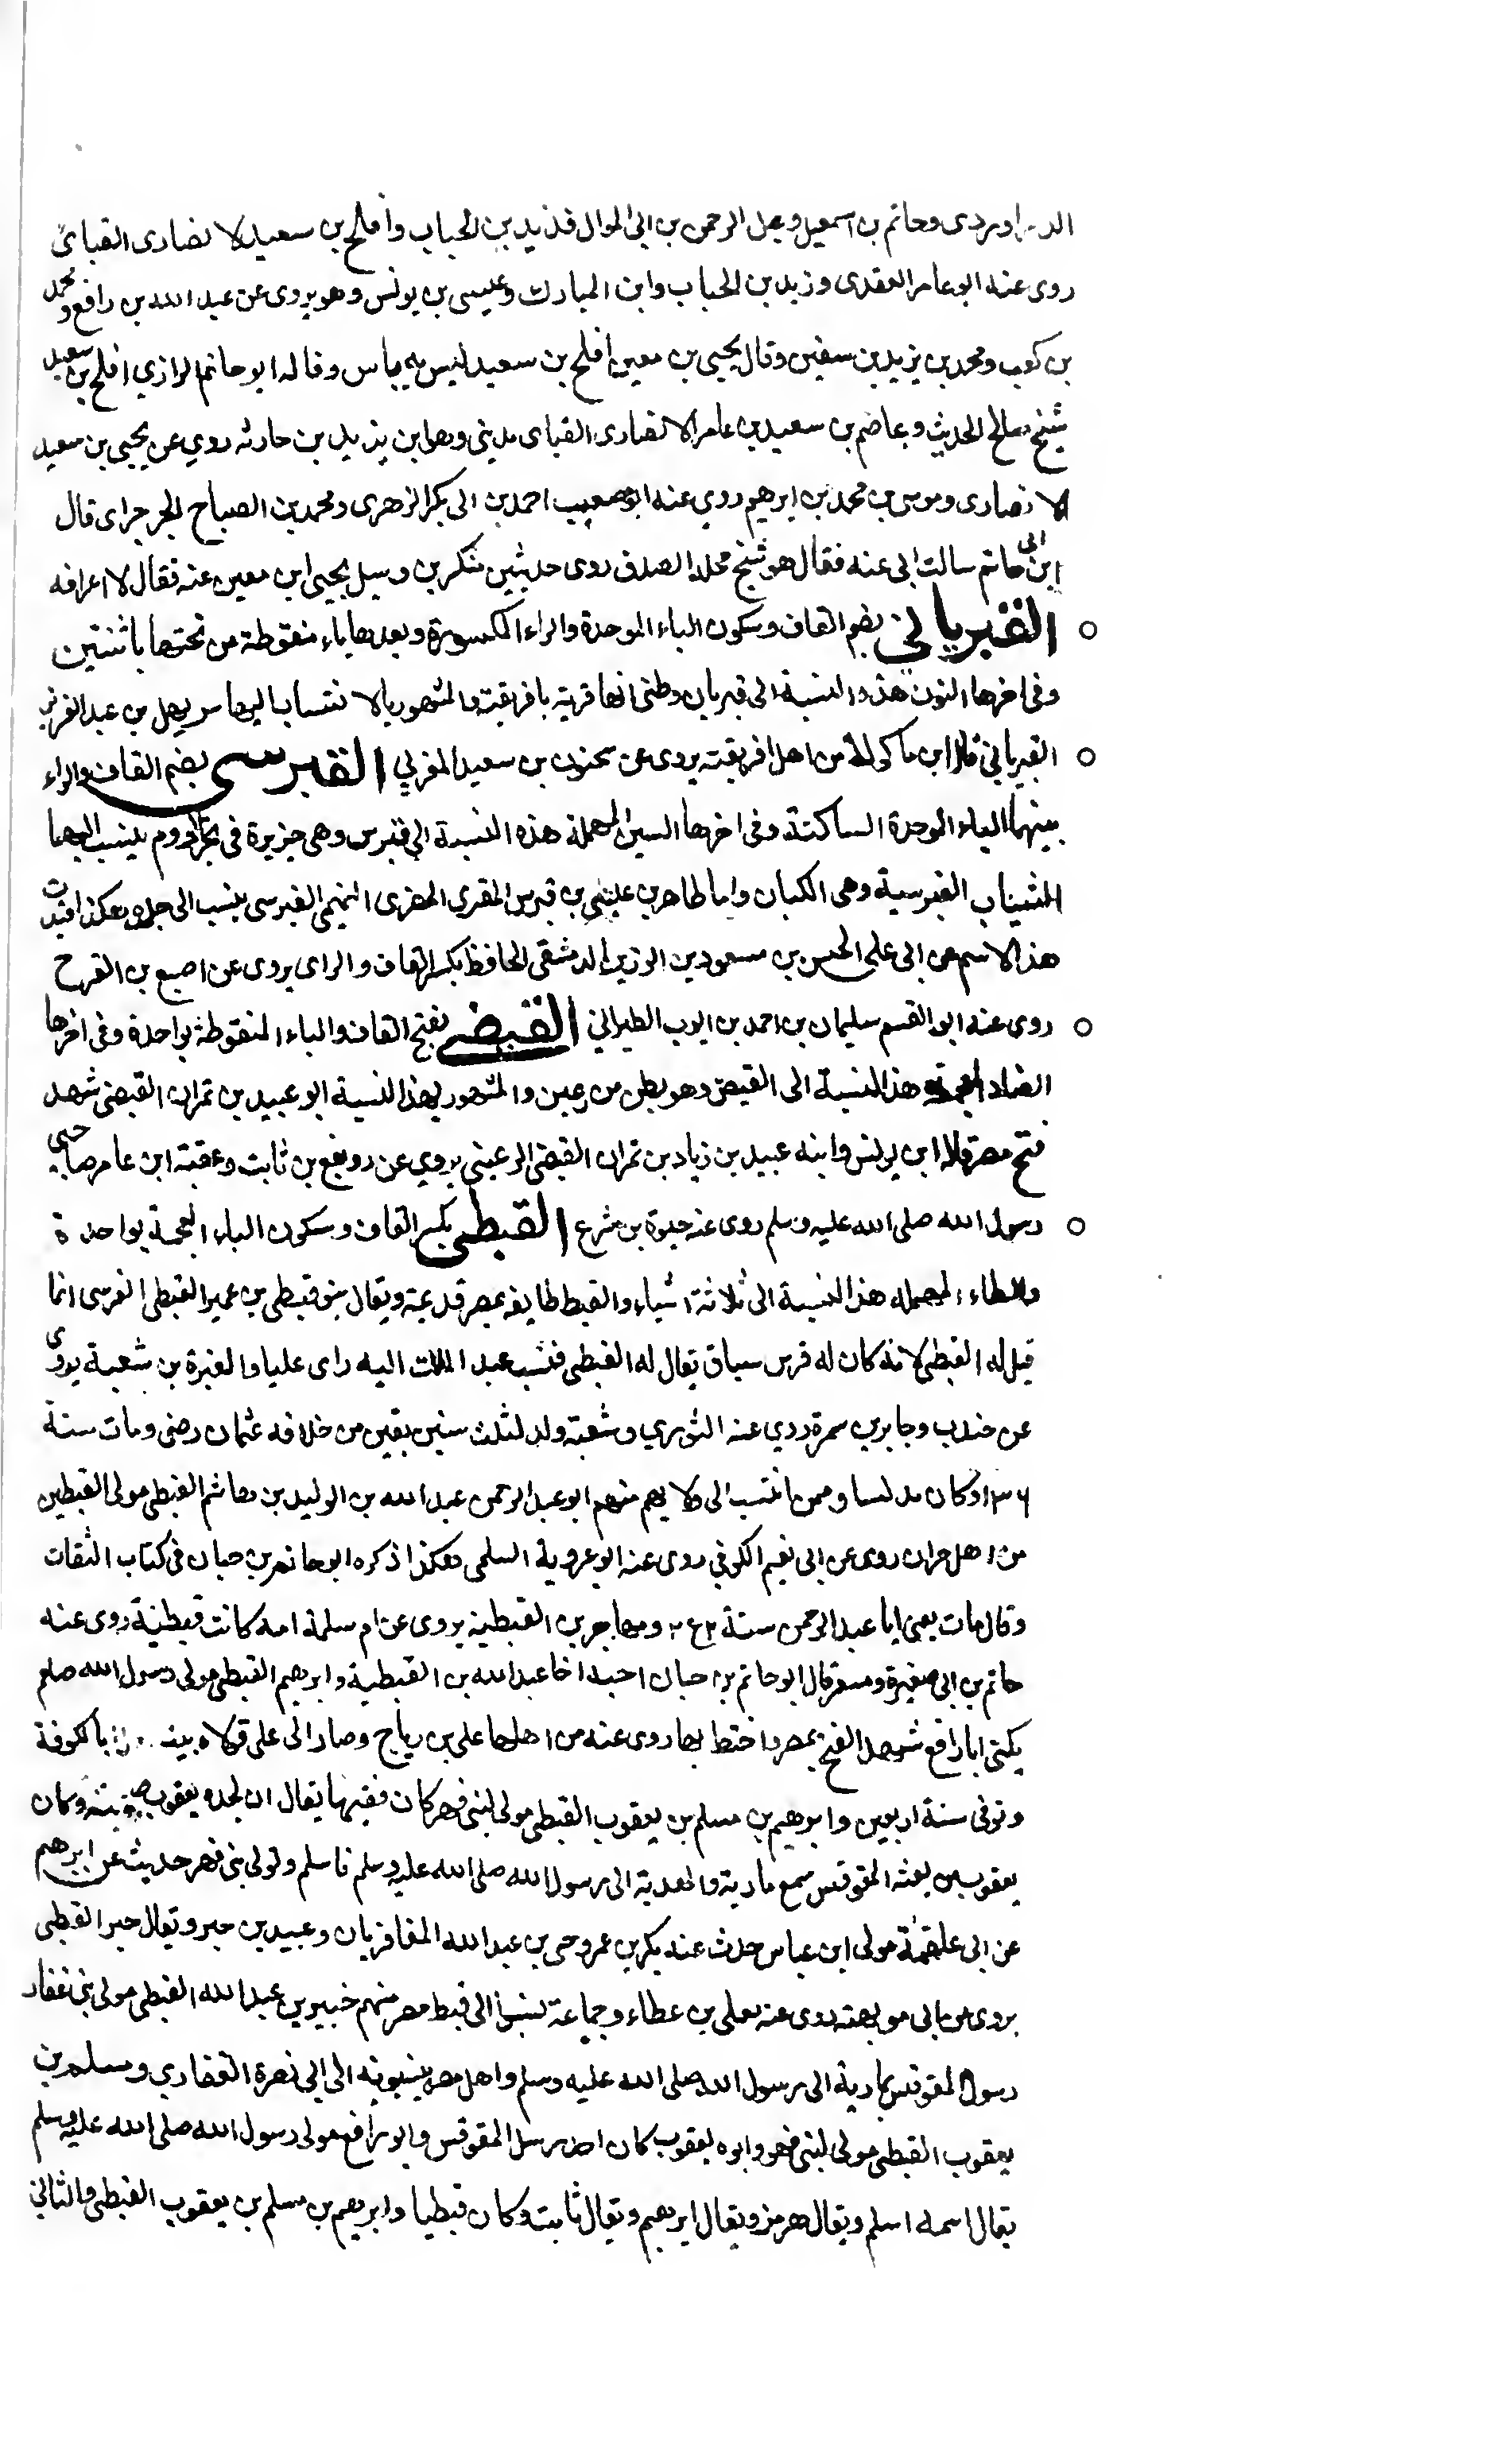 الدراوردى وحاتم بن اسمعيل وعبد الرحمن بن ابى الموال فزيد بن الحباب وافلح بن سعيد الانصارى القبائ
روى عنه ابو عامر العقدى وزيد بن الحباب وابن المبارك وعيسى بن يونس وهو يروى عن عبد الله بن رافع ومحمد
بن كعب ومحمد بن يزيد بن سفين وقال يحيى بن معين افلح بن سعيد ليس به باس وقال ابو حاتم الرازي افلح بن سعيد
شيخ صالح الحديث وعاصم بن سعيد بن عامر الانصارى القباى مدينى وهو ابن يزيد بن حارثه روي عن يحيى بن سعيد
الانصارى وموسى بن محمد بن ابرهيم روي عنه ابو مصعب احمد بن ابى بكر الزهرى ومحمد بن الصباح الجرجراى قال
ابن ابى حاتم سالت ابى عنه فقال هو شيخ محله الصدق روى حديثين منكرين وسيل يحيى ابن معين عنه فقال لا اعرافه
القبرياني بضم القاف وسكون الباء الموحدة والراء المكسورة وبعدها ياء منقوطة من تحتها باثنتين
وفى اخرها النون هذه النسبة الى قبريان وظنى انها قرية بافريقية والمشهور بالانتساب اليها سهل بن عبد العزيز
القبرياني قال ابن ماكولا من اهل افريقية يروى عن سحنون بن سعيد المغربي القبرسى بضم القاف والراء
بينهما الباء الموحدة الساكنة وفى اخرها السين المهملة هذه النسبة الى قبرس وهى جزيرة فى بحر الروم ينسب اليها
الثياب القبرسية وهى الكبان واما طاهر بن عيسى بن قبرس المقرى المصرى التميمى القبرسى ينسب الى جده هكذا قيدت
هذا الاسم عن ابى على الحسن بن مسعود بن الوزير الدمشقى الحافظ بكسر القاف والراى يروى عن اصبع بن الفرح
روى عنه ابو القسم سليمان بن احمد بن ايوب الطبرانى القبضى بفتح القاف والباء المنقوطة بواحدة وفى اخرها
الضاد المعجمة هذه النسبة الى القبض وهو بطن من رعين والمشهور بهذه النسبة ابو عبيد بن نمران القبضى شهد
فتح مصر قاله ابن يونس وابنه عبيد بن زياد بن نمران القبضى الرعينى يروي عن رويفع بن ثابت وعقبة ابن عامر صاحبى
رسول الله صلى الله عليه وسلم روى عنه حيوة بن شرع القبطى بكسر القاف وسكون الباء المعجمة بواحدة
والطاء المهمله هذه النسبة الى ثلاثة اشياء والقبط طايفه بمصر قديمة ويقال بنو قبطى بن عمير القبطى الفرسى انما
قيل له القبطى لانه كان له فرس سباق يقال له القبطى فنسب عبد الملك اليه راى عليا والمغيرة بن شعبة يروى
عن جندب وجابر بن سمرة روي عنه الثوري وشعبة ولد لثلث سنين بقين من خلافه عثمان رضى ومات سنة
١٣٦ وكان مدلسا وممن انتسب الى ولايهم منهم ابو عبد الرحمن عبد الله بن الوليد بن هاشم القبطى مولى القبطين
من اهل حران روى عن ابى نعيم الكوفي روى عنه ابو عروبة السلمى هكذا ذكره ابو حاتم بن حبان فى كتاب الثقات
وقال مات يعنى ابا عبد الرحمن سنة ٢٤٢ ومهاجر بن القبطية يروى عن ام سلمة امه كانت قبطية روى عنه
حاتم بن ابى صغيرة ومسعر قال ابو حاتم بن حبان احسبه اخا عبد الله بن القبطية وابرهيم القبطى مولى رسول الله صلعم
يكنى ابا رافع شهد الفتح بمصر واختط بها روى عنه من اهلها على بن رباح وصار الى على فولاه بيت بالكوفة
وتوفى سنة اربعين وابرهيم بن مسلم بن يعقوب القبطى مولى لبنى فهر كان فقيها يقال ان لجده يعقوب صحبة وكان
يعقوب ممن بعثه المقوقس مع مارية والهدية الى رسول الله صلى الله عليه وسلم فاسلم وتولى بنى فهر حديث عن ابرهيم
عن ابى علقمة مولى ابن عباس حدث عنه بكر بن عمرو حى بن عبد الله المغافريان وعبيد بن جبر ويقال جبر القبطى
يروى عن ابى مويهبة روى عنه يعلى بن عطاء وجماعة نسبوا الى قبط مصر منهم جبير بن عبد الله القبطى مولى بنى غفار
رسول المقوقس بمارية الى رسول الله صلى الله عليه وسلم واهل مصر ينسبونه الى ابى نصرة الغفاري ومسلم بن
يعقوب القبطى مولى لبنى فهر وابوه يعقوب كان احد رسل المقوقس وابو رافع مولى رسول الله صلى الله عليه وسلم
يقال اسمه اسلم ويقال هرمز ويقال ابرهيم ويقال ثابت وكان قبطيا وابرهيم بن مسلم بن يعقوب القبطى والثانى